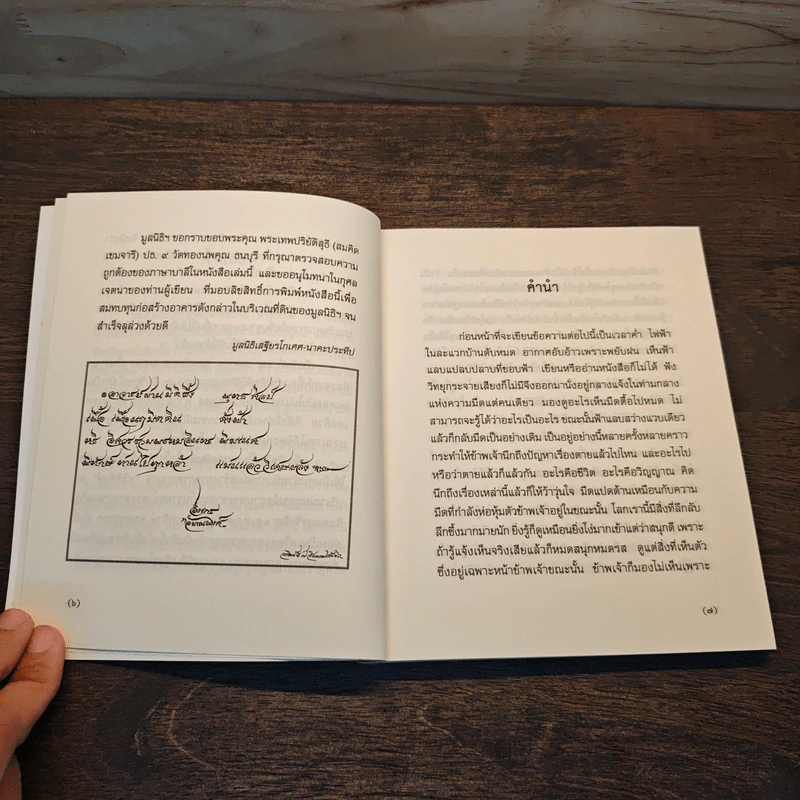 มูลนิธิฯ ขอกราบขอบพระคุณ พระเทพปริยัติสุธี (สมคิด
เขมจารี) ปธ. ๙ วัดทองนพคุณ ธนบุรี ที่กรุณาตรวจสอบความ
ถูกต้องของภาษาบาลีในหนังสือเล่มนี้ และขออนุโมทนาในกุศล
เจตนาของท่านผู้เขียน ที่มอบลิขสิทธิ์การพิมพ์หนังสือนี้เพื่อ
สมทบทุนก่อสร้างอาคารดังกล่าวในบริเวณที่ดินของมูลนิธิฯ จน
สำเร็จลุล่วงด้วยดี
มูลนิธิเสฐียรโกเศศ-นาคะประทีป
(๖)
คำนำ
ก่อนหน้าที่จะเขียนข้อความต่อไปนี้เป็นเวลาค่ำ ไฟฟ้า
ในละแวกบ้านดับหมด อากาศอับอ้าวเพราะพยับฝน เห็นฟ้า
แลบแปลบปลาบที่ขอบฟ้า เขียนหรืออ่านหนังสือก็ไม่ได้ ฟัง
วิทยุกระจายเสียงก็ไม่มีจึงออกมานั่งอยู่กลางแจ้งในท่ามกลาง
แห่งความมืดแต่คนเดียว มองดูอะไรเห็นมืดตื้อไปหมด ไม่
สามารถจะรู้ได้ว่าอะไรเป็นอะไร ขณะนั้นฟ้าแลบสว่างแวบเดียว
แล้วก็กลับมืดเป็นอย่างเดิม เป็นอยู่อย่างนี้หลายครั้งหลายคราว
กระทำให้ข้าพเจ้านึกถึงปัญหาเรื่องตายแล้วไปไหน และอะไรไป
หรือว่าตายแล้วก็แล้วกัน อะไรคือชีวิต อะไรคือวิญญาณ คิด
นึกถึงเรื่องเหล่านี้แล้วก็ให้ว้าวุ่นใจ มืดแปดด้านเหมือนกับความ
มืดที่กำลังห่อหุ้มตัวข้าพเจ้าอยู่ในขณะนั้น โลกเรานี้มีสิ่งที่ลึกลับ
ลึกซึ้งมากมายนัก ยิ่งรู้ก็ดูเหมือนยิ่งโง่มากเข้าแต่ว่าสนุกดี เพราะ
ถ้ารู้แจ้งเห็นจริงเสียแล้วก็หมดสนุกหมดรส ดูแต่สิ่งที่เห็นตัว
ซึ่งอยู่เฉพาะหน้าข้าพเจ้าขณะนั้น ข้าพเจ้าก็มองไม่เห็นเพราะ
(๗)